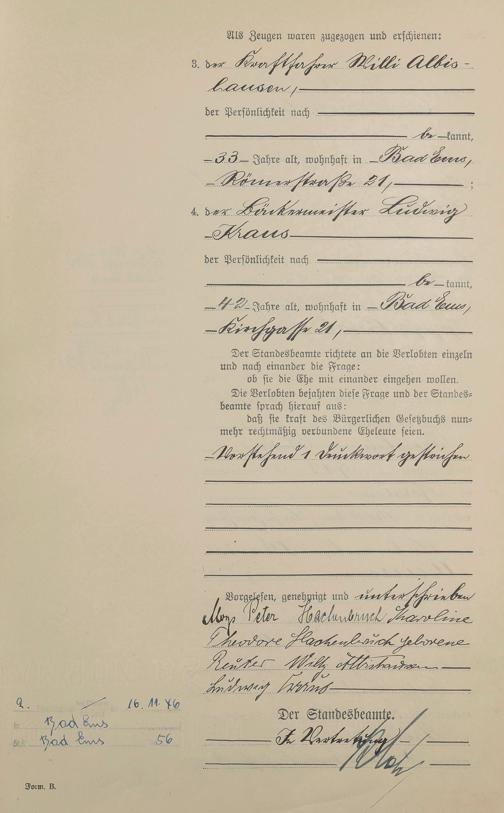 Als Zeugen waren zugezogen und erschienen:
3. der Kraftfahrer Willi Albis-
hausen,
der Persönlichkeit nach
be kannt,
33 Jahre alt, wohnhaft in Bad Ems,
Römerstraße 21, ;
4. der Bäckermeister Ludwig
Kraus
der Persönlichkeit nach
be kannt,
42 Jahre alt, wohnhaft in Bad Ems,
Kirchgasse 21,
Der Standesbeamte richtete an die Verlobten einzeln
und nach einander die Frage:
ob sie die Ehe mit einander eingehen wollen.
Die Verlobten bejahten diese Frage und der Standes-
beamte sprach hierauf aus:
daß sie kraft des Bürgerlichen Gesetzbuchs nun-
mehr rechtmäßig verbundene Eheleute seien.
Vorstehend 1 Druckwort gestrichen
Vorgelesen, genehmigt und unterschrieben
Aloys Peter Hachenbruch Karoline
Theodore Hachenbruch geborene
Reuter Willy Albishausen
Ludwig Kraus
Der Standesbeamte.
In Vertretung
a. 16. 11. 46
Bad Ems
Bad Ems 56
Form. B.